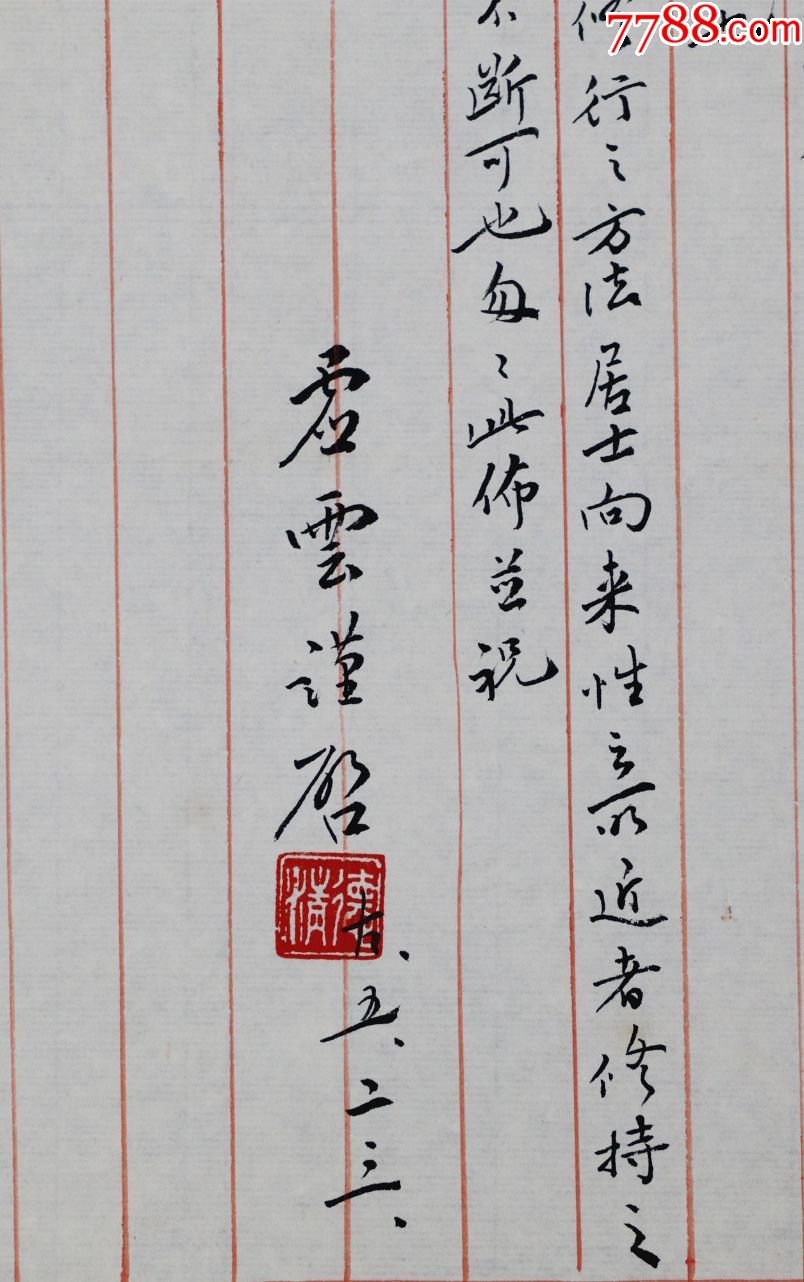 修行之方法居士向来性之所近者修持之
不断可也匆々此佈並祝
虛雲謹啓
五、二三、
德清
7788.com